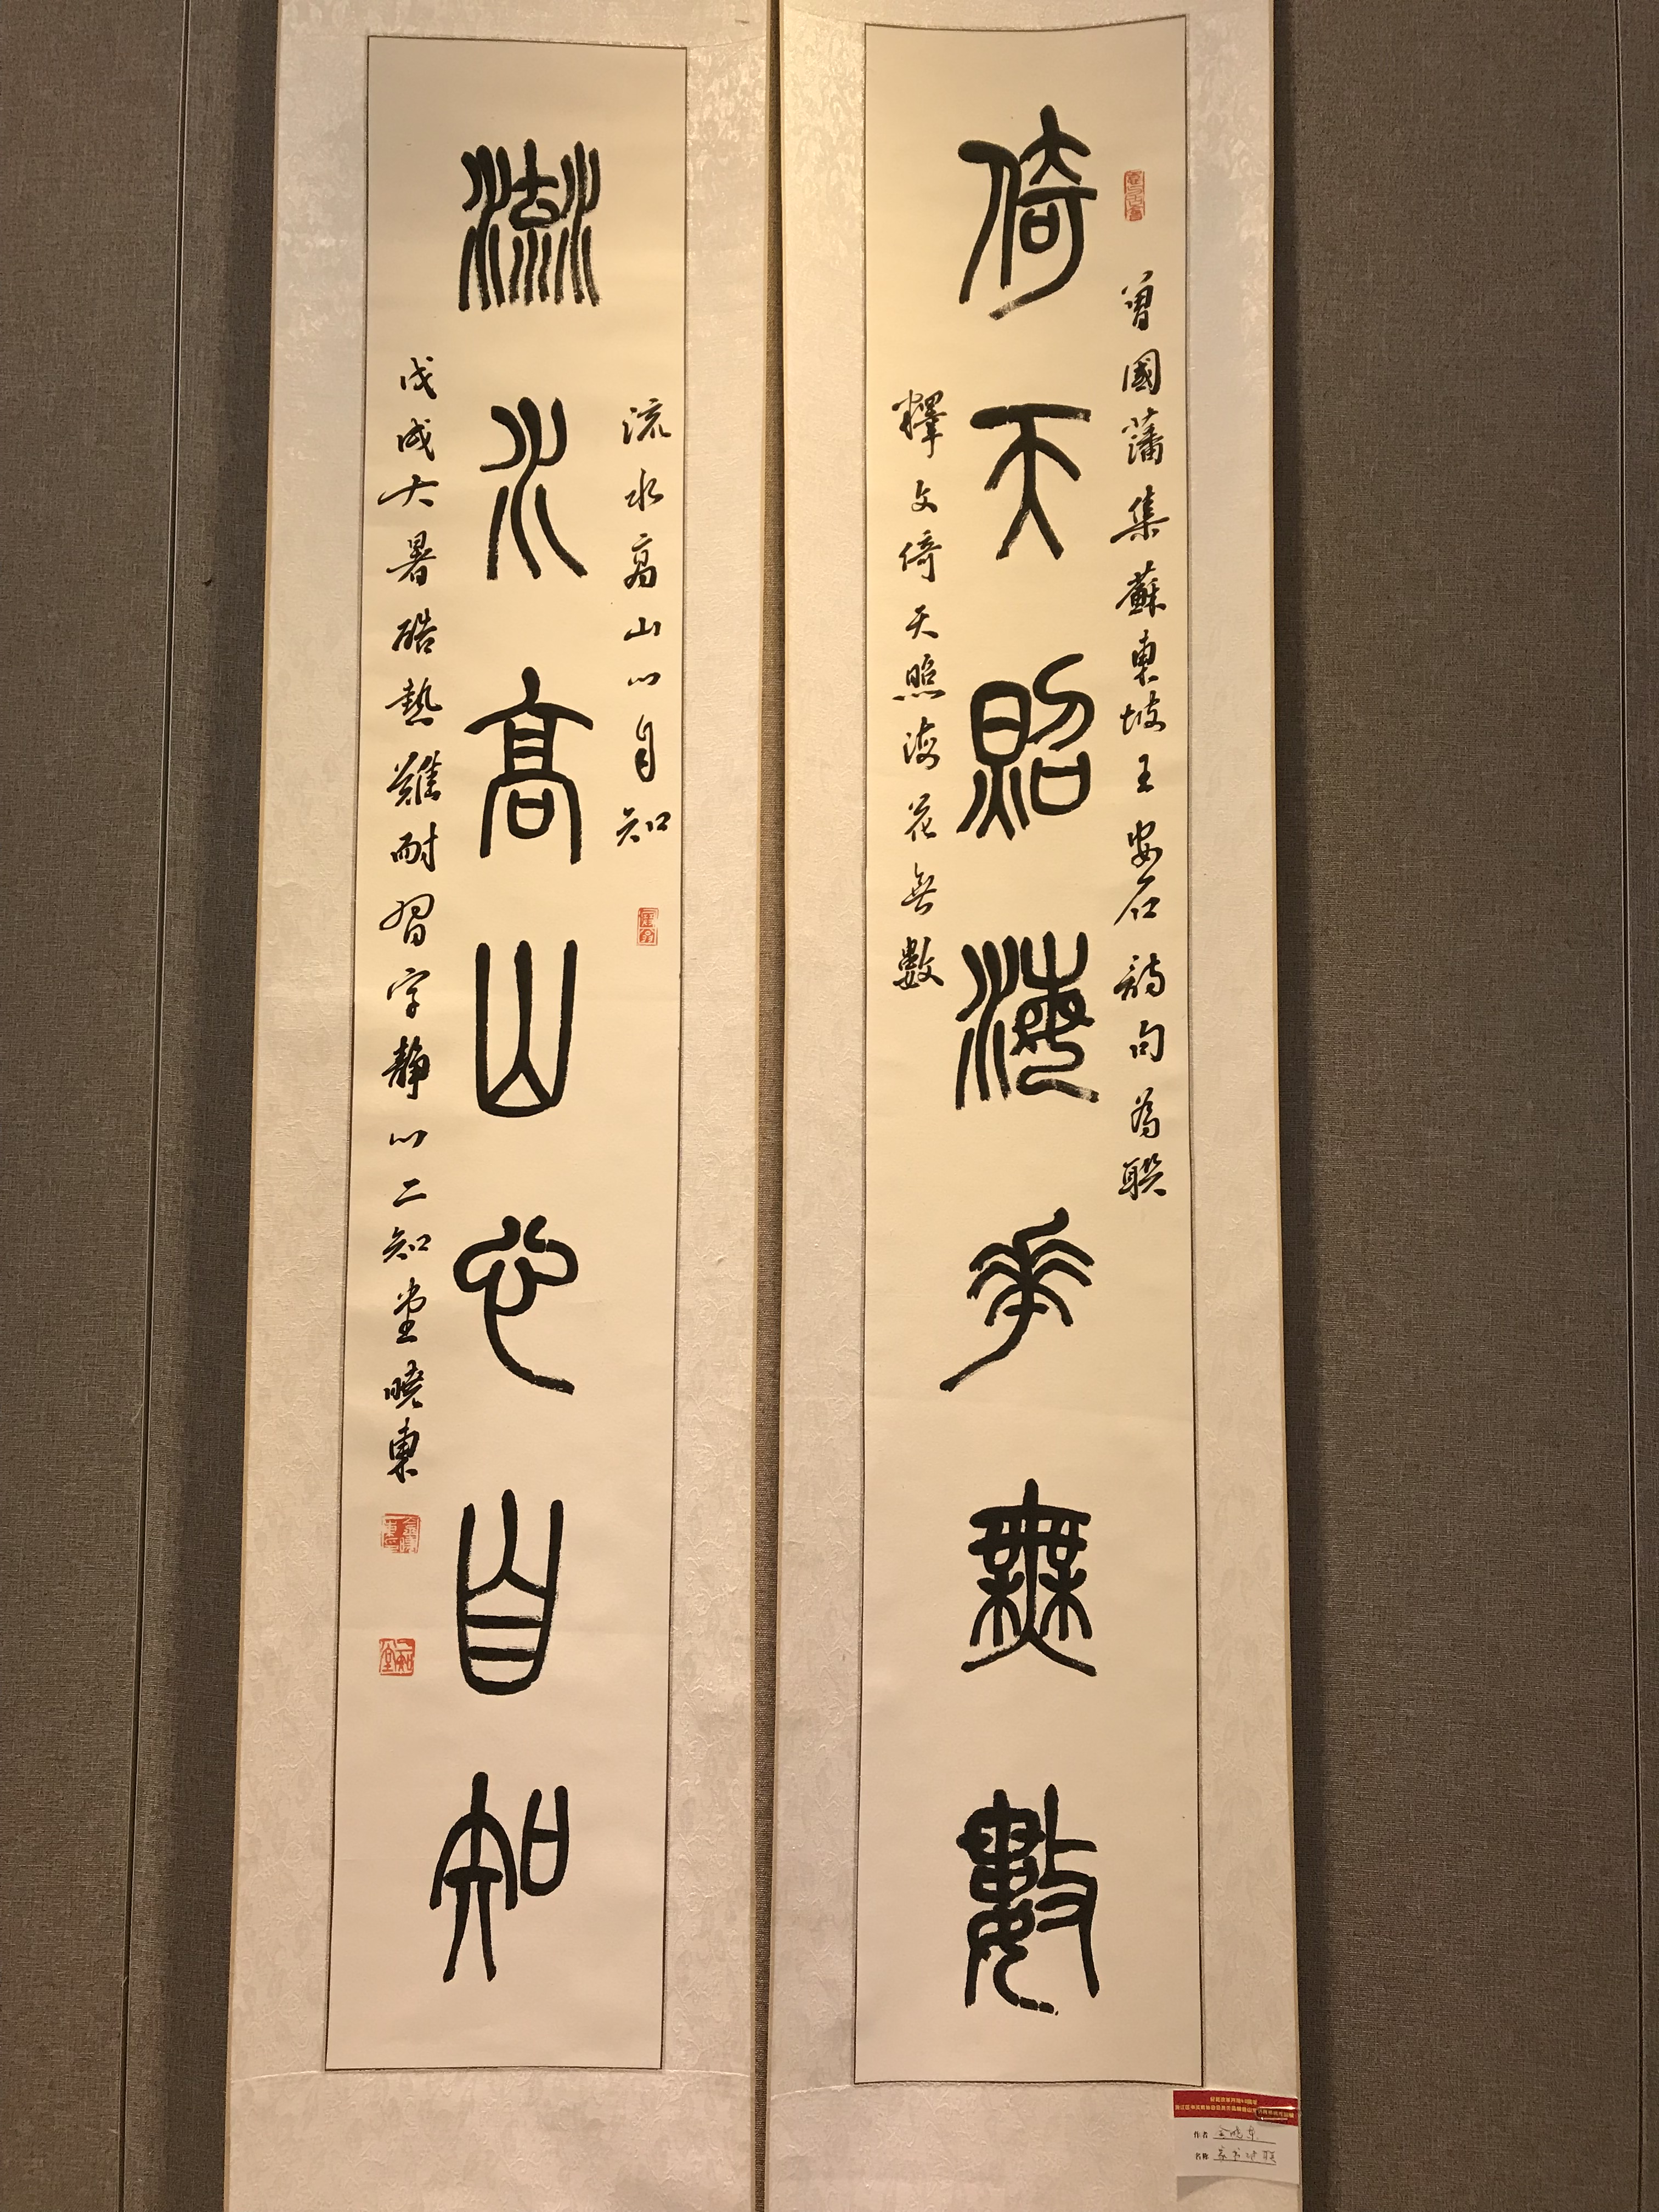 曾國藩集蘇東坡王安石詩句為聯
倚天照海華無數
釋文倚天照海花無數
流水高山心自知
流水高山心自知
戊戌大暑酷熱難耐習字靜心二知堂曉東
作者 金曉东
名称 篆书对联